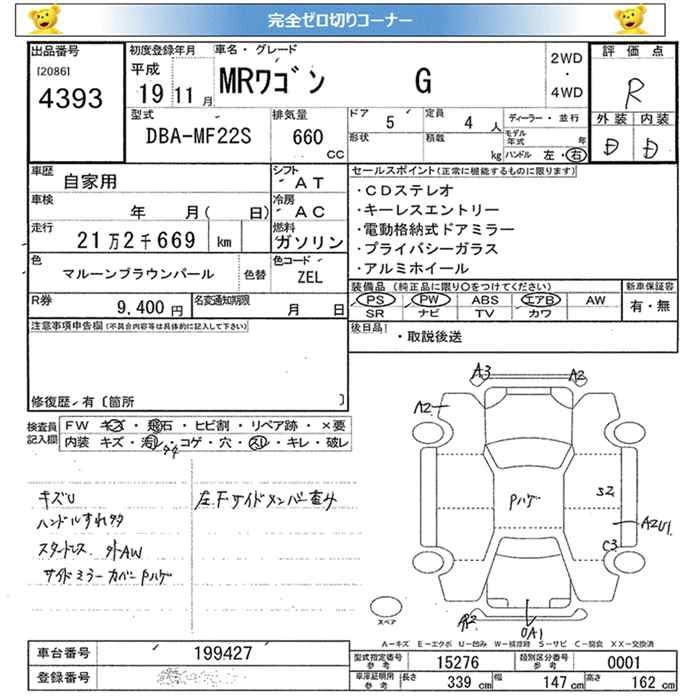 完全ゼロ切りコーナー
出品番号
[2086]
4393
初度登録年月
平成
19 11 月
車名・グレード
MRワゴン G
2WD
・
4WD
評価点
R
外装 内装
D D
型式
DBA-MF22S
排気量
660
CC
ドア 5
定員 4 人
形状
積載 kg
ディーラー・並行
モデル年式 年
ハンドル 左・右
車歴
自家用
シフト
AT
車検
年 月( 日)
冷房
AC
走行
21万2千669 km
燃料
ガソリン
色
マルーンブラウンパール
色替
色コード
ZEL
R券
9,400 円
名変通知期限
月 日
セールスポイント(正常に機能するものに限ります)
・CDステレオ
・キーレスエントリー
・電動格納式ドアミラー
・プライバシーガラス
・アルミホイール
装備品(純正品に限り○をつけてください)
新車保証容
PS PW ABS エアB AW
SR ナビ TV カワ
有・無
後日品!
・取説後送
注意事項申告欄(不具合内容等は具体的に記入して下さい)
修復歴・有〔箇所 〕
検査員記入欄
FW キズ・飛石・ヒビ割・リペア跡・×要
内装 キズ・汚レ・コゲ・穴・スレ・キレ・破レ
キズU
ハンドルすれタタ
スタートレス 外AW
サイドミラーカバーPハゲ
左Fサイドメンバー歪み
A3
A2
A2
Pハゲ
S2
A2U1
C3
スペア
R2
OA1
A-キズ E-エクボ U-凹み W-補修跡 S-サビ C-腐食 XX-交換済
車台番号
199427
登録番号
型式指定番号
参考
15276
類別区分番号
参考
0001
車庫証明用
参考
長さ 339 cm
幅 147 cm
高さ 162 cm